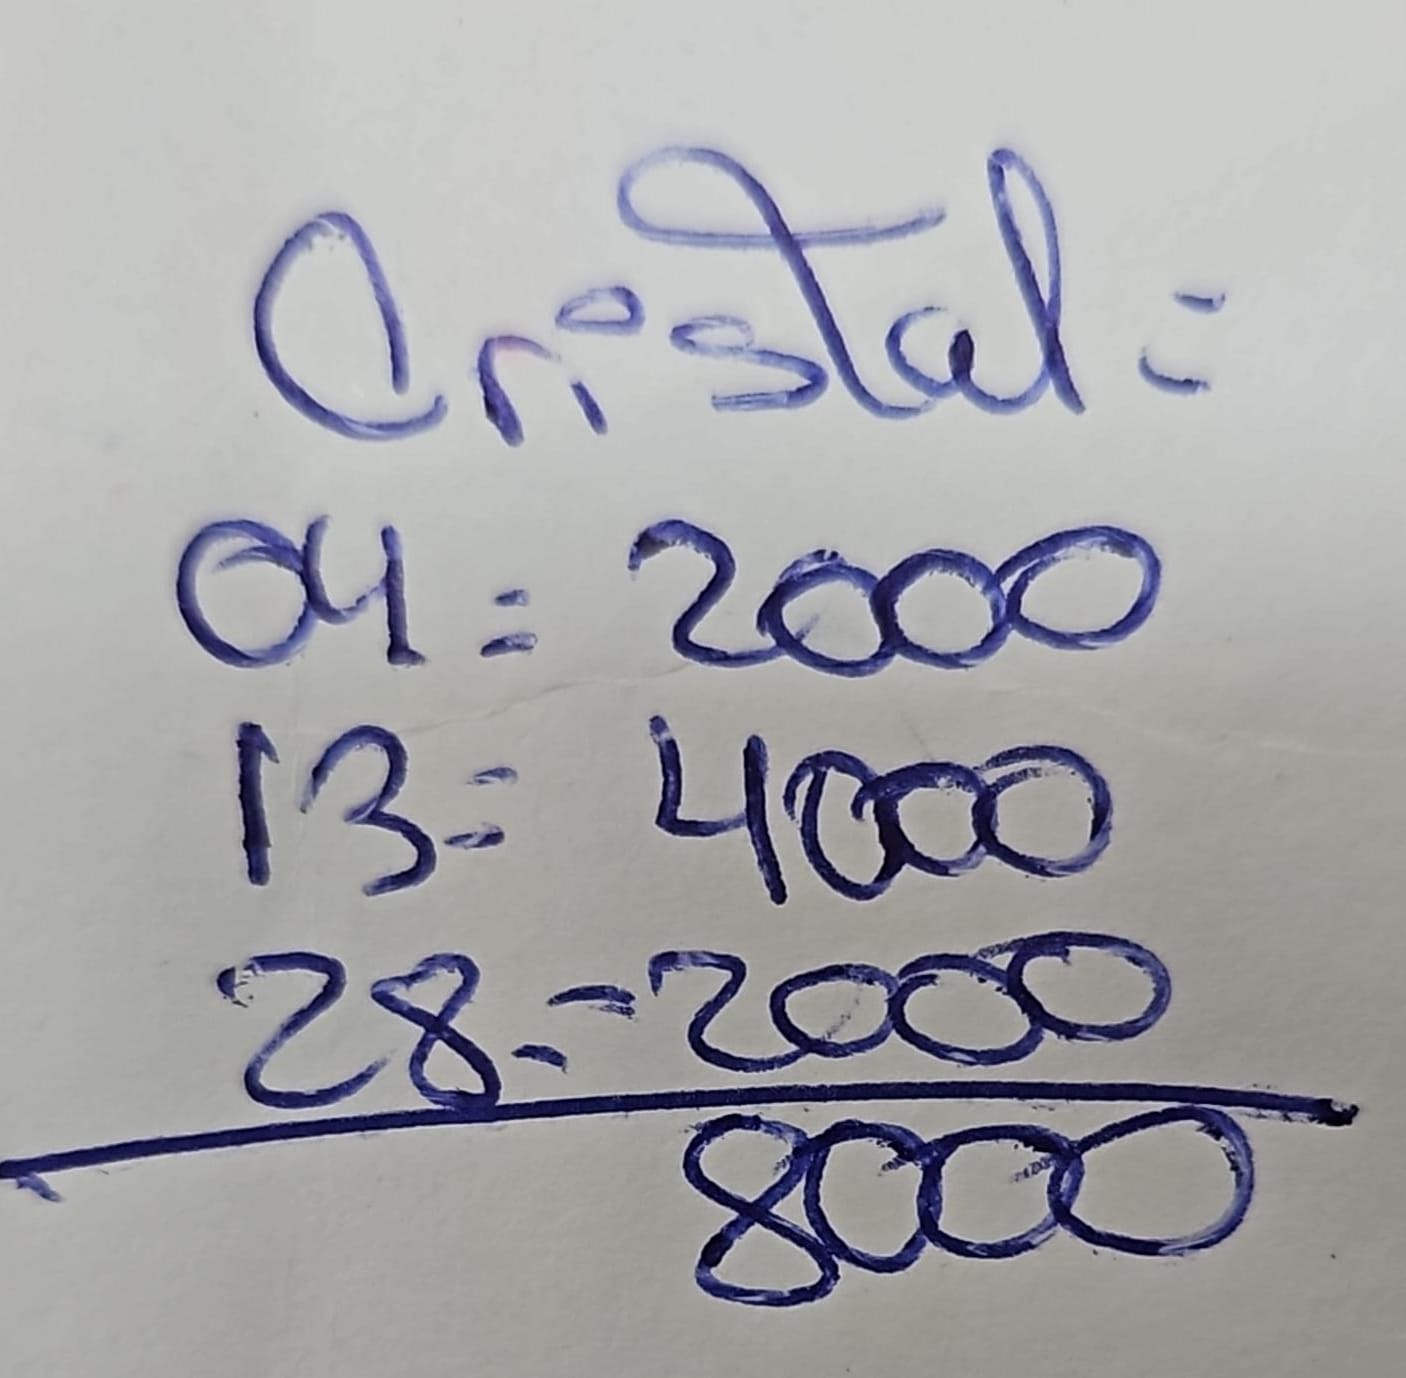 Cristal =
04 = 2000
13 = 4000
28 = 2000
8000